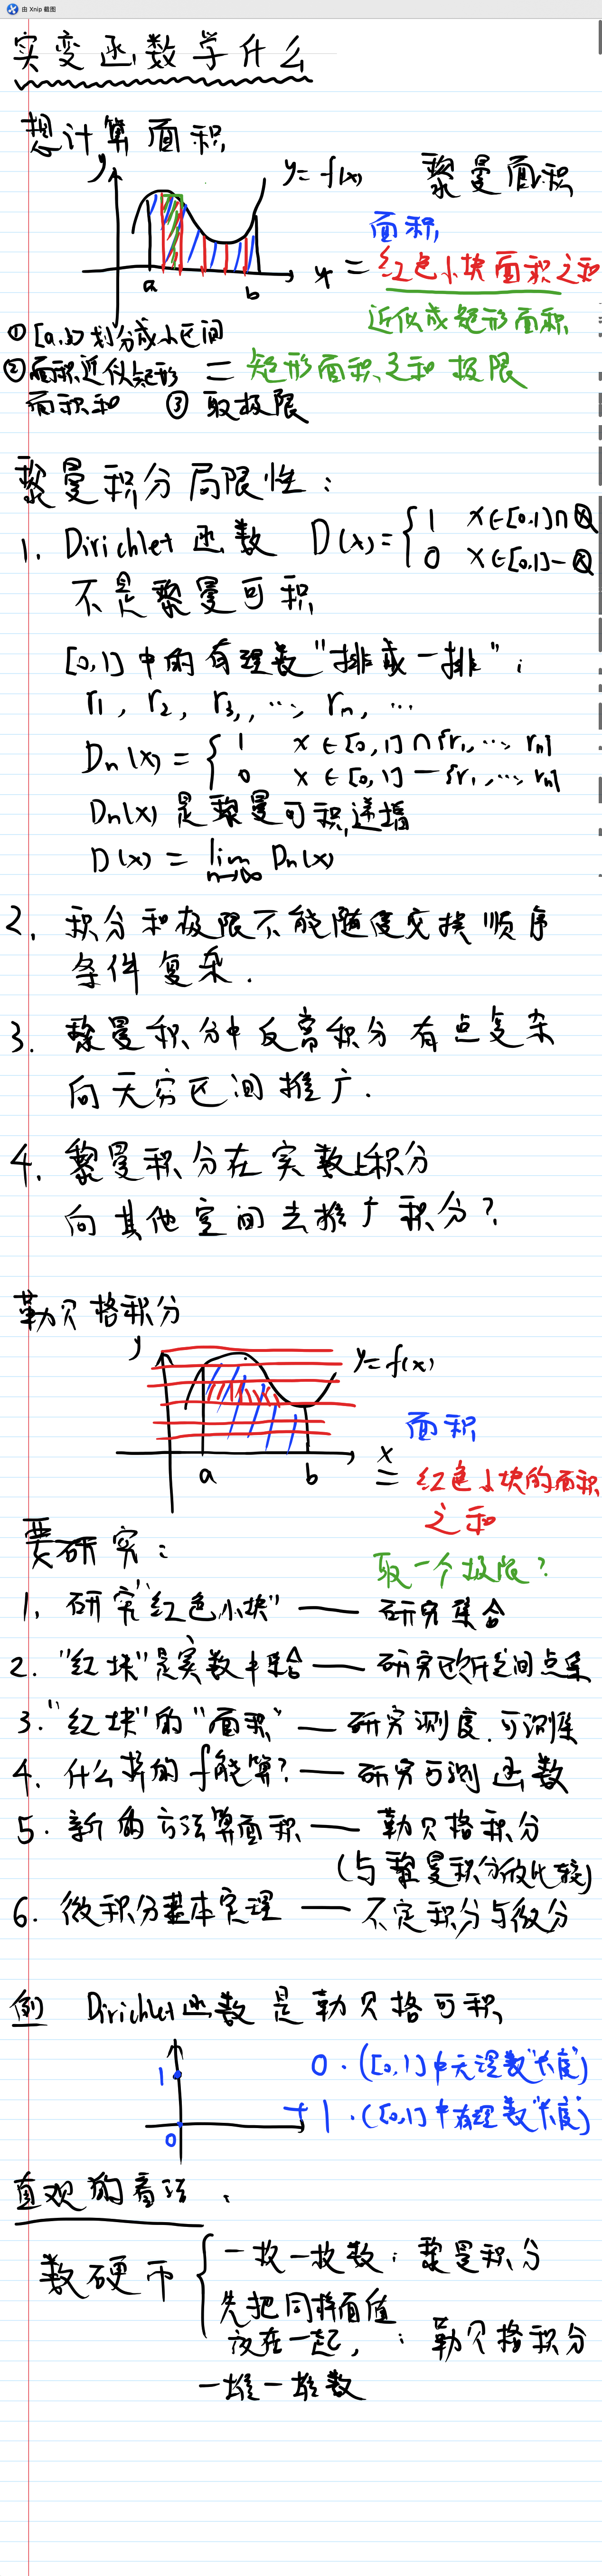 由 Xnip 截图
实变函数学什么
想计算面积
y
y=f(x)
黎曼面积
a
b
x
面积
= 红色小块面积之和
近似成矩形面积
① [a,b] 划分成小区间
② 面积近似矩形
= 矩形面积之和 极限
面积和 ③ 取极限
黎曼积分局限性:
1. Dirichlet 函数 D(x)= { 1 x∈[0,1]∩Q
0 x∈[0,1]-Q
不是黎曼可积
[0,1] 中的有理数"排成一排":
r1, r2, r3, ..., rn, ...
Dn(x) = { 1 x∈[0,1]∩{r1,...,rn}
0 x∈[0,1]-{r1,...,rn}
Dn(x) 是黎曼可积,递增
D(x) = lim n→∞ Dn(x)
2. 积分和极限不能随便交换顺序
条件复杂.
3. 黎曼积分中反常积分有点复杂
向无穷区间推广.
4. 黎曼积分在实数上积分
向其他空间去推广积分?
勒贝格积分
y
y=f(x)
a
b
x
面积
= 红色小块的面积
之和
取一个极限?
要研究:
1. 研究"红色小块" —— 研究集合
2. "红块"是实数中集合 —— 研究欧氏空间点集
3. "红块"的"面积" —— 研究测度.可测集
4. 什么样的f能算? —— 研究可测函数
5. 新的方法算面积 —— 勒贝格积分
(与黎曼积分做比较)
6. 微积分基本定理 —— 不定积分与微分
例 Dirichlet函数是勒贝格可积
1
0
0·([0,1]中无理数"长度")
+ 1·([0,1]中有理数"长度")
直观的看法:
数硬币 { 一枚一枚数: 黎曼积分
先把同样面值
放在一起, : 勒贝格积分
一堆一堆数